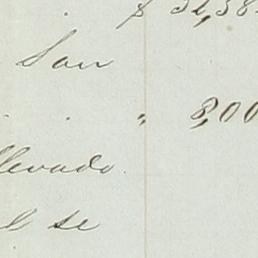 $ 32,38
San
" 8,00
llevado
el se